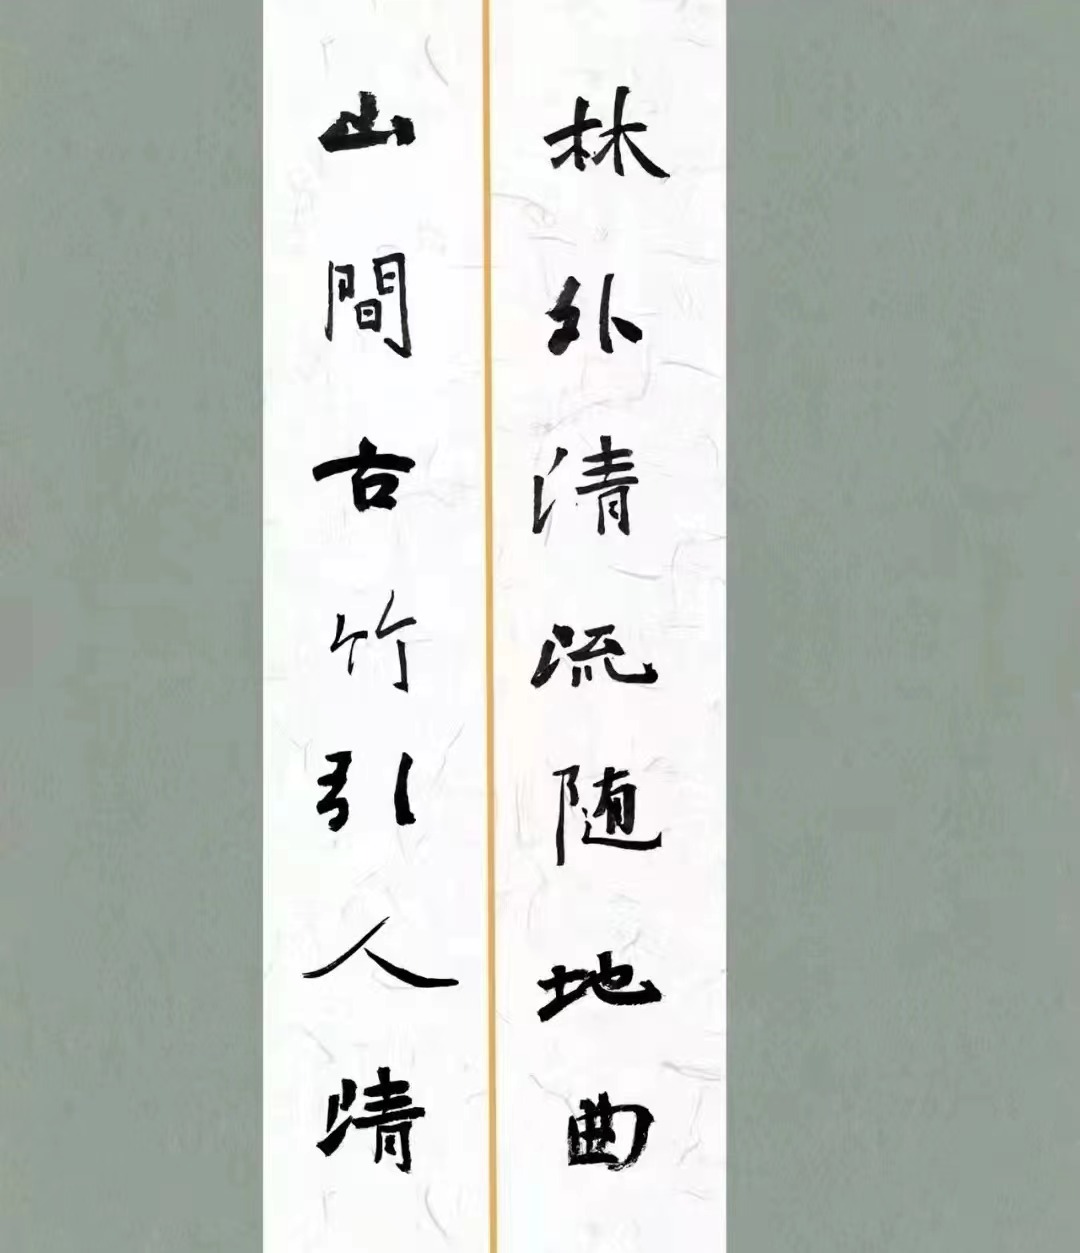 林外清流随地曲
山間古竹引人